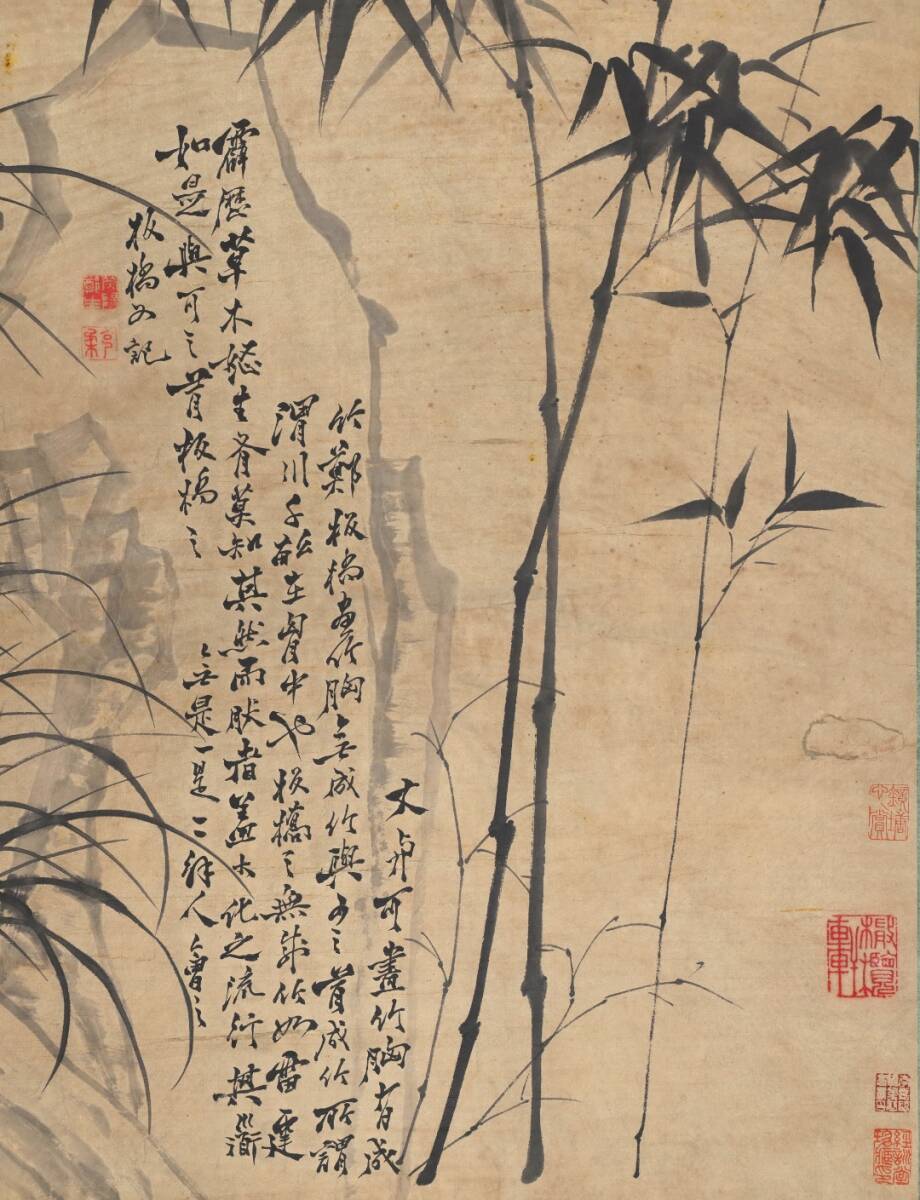 文與可畫竹胸有成
竹鄭板橋畫竹胸無成竹與可之有成竹所謂
渭川千畝在胷中也板橋之無成竹如雷霆
霹歷草木怒生有莫知其然而然者蓋大化之流行其道
如是與可之有板橋之無是一是二解人會之
板橋又記